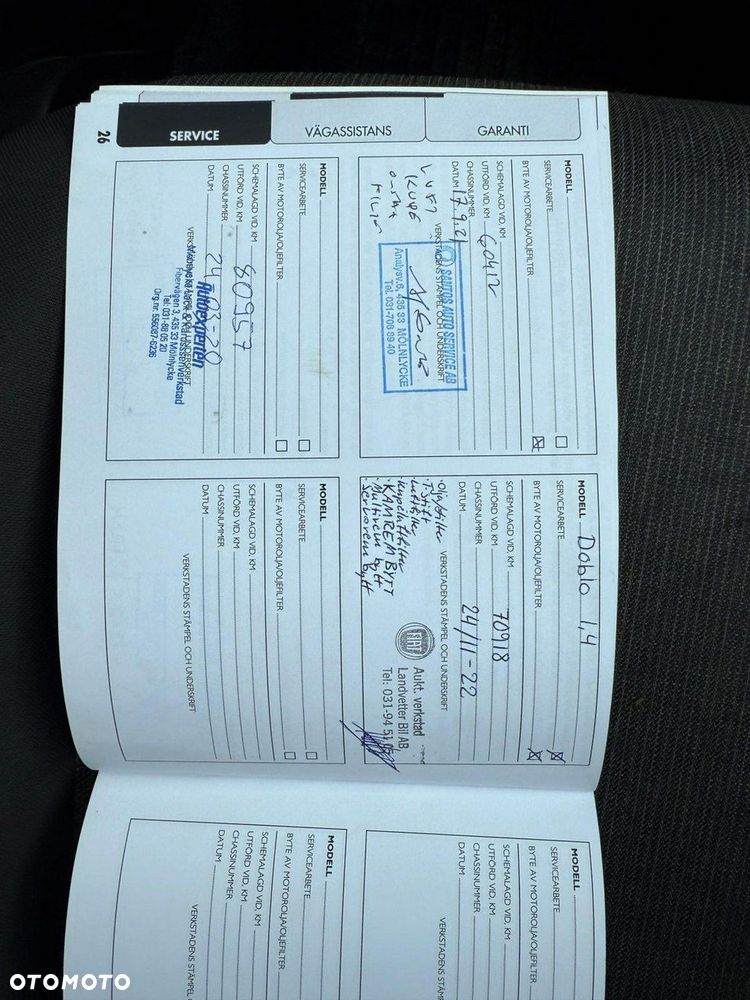 26
SERVICE
VÄGASSISTANS
GARANTI
MODELL
SERVICEARBETE
BYTE AV MOTOROLJA/OLJEFILTER
SCHEMALAGD VID, KM
UTFÖRD VID, KM
CHASSINUMMER
DATUM 17.9.21
VERKSTADENS STÄMPEL OCH UNDERSKRIFT
SANTOS AUTO SERVICE AB
Analysv.6, 435 33 MÖLNLYCKE
Tel. 031-706 89 40
MODELL Doblo 1,4
SERVICEARBETE
BYTE AV MOTOROLJA/OLJEFILTER
SCHEMALAGD VID, KM
UTFÖRD VID, KM 70918
CHASSINUMMER
DATUM 24/11-22
VERKSTADENS STÄMPEL OCH UNDERSKRIFT
• Olja/filter
• Tstift
Luftfilter
kupéluftfilter
• KAMREM BYTT
• Multirem bytt
servorem bytt
FIAT
Aukt. verkstad
Landvetter Bil AB
Tel: 031-94 51 05
MODELL
SERVICEARBETE
BYTE AV MOTOROLJA/OLJEFILTER
SCHEMALAGD VID, KM
UTFÖRD VID, KM 80957
CHASSINUMMER
DATUM 24-03-20
VERKSTADENS STÄMPEL OCH UNDERSKRIFT
Autoexperten
Mölnlycke Lack & Karosseriverkstad
Fibervägen 3, 435 33 Mölnlycke
Tel: 031-88 05 20
Org.nr: 556087-6236
MODELL
SERVICEARBETE
BYTE AV MOTOROLJA/OLJEFILTER
SCHEMALAGD VID, KM
UTFÖRD VID, KM
CHASSINUMMER
DATUM
VERKSTADENS STÄMPEL OCH UNDERSKRIFT
MODELL
SERVICEARBETE
BYTE AV MOTOROLJA/OLJEFILTER
SCHEMALAGD VID, KM
UTFÖRD VID, KM
CHASSINUMMER
DATUM
VERKSTADENS STÄ
MODELL
SERVICEARBETE
BYTE AV MOTOROLJA/OLJEFILTER
SCHEMALAGD VID, KM
UTFÖRD VID, KM
CHASSINUMMER
DATUM
VERKSTADENS STÄ
OTOMOTO